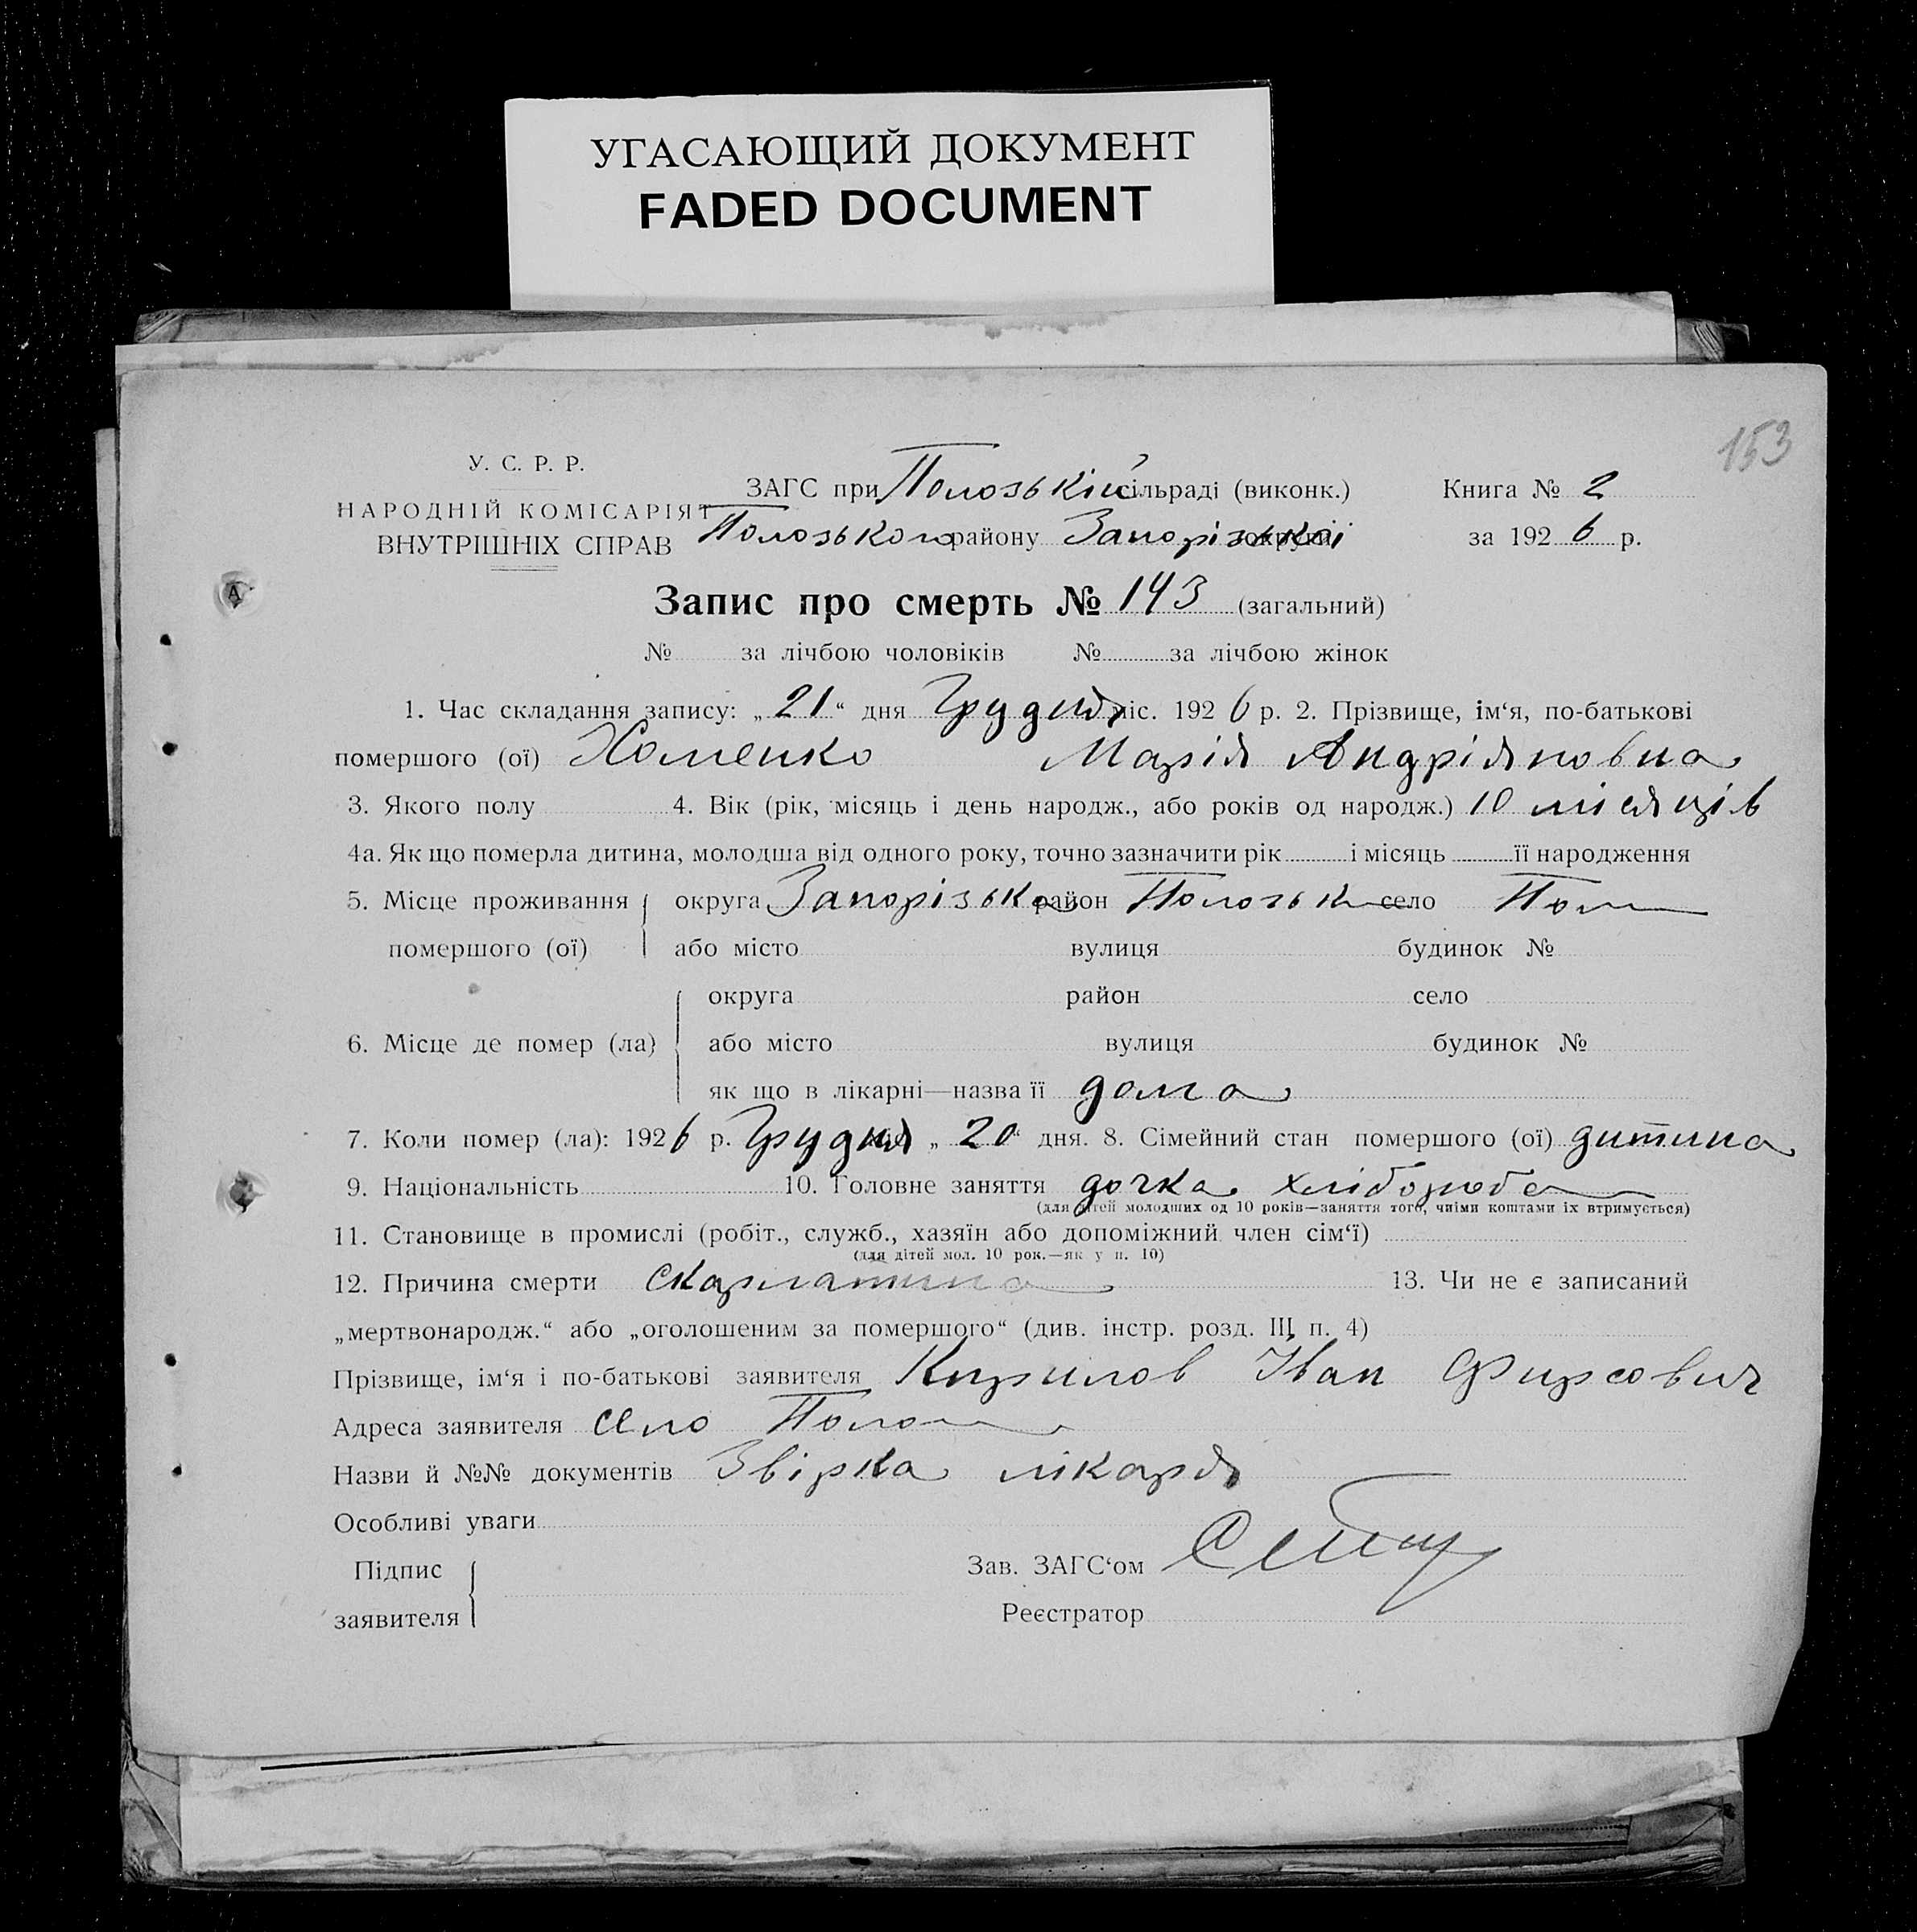 УГАСАЮЩИЙ ДОКУМЕНТ
FADED DOCUMENT
153
У. С. Р. Р.
НАРОДНІЙ КОМІСАРІЯТ
ВНУТРІШНІХ СПРАВ
ЗАГС при Полозькій сільраді (виконк.) Книга № 2
Полозького району Запорізької округи за 1926 р.
Запис про смерть № 143 (загальний)
№ за лічбою чоловіків № за лічбою жінок
1. Час складання запису: „21“ дня Грудня міс. 1926 р. 2. Прізвище, ім‘я, по-батькові
помершого (ої) Хоменко Марія Андріяновна
3. Якого полу 4. Вік (рік, місяць і день народж., або років од народж.) 10 місяців
4а. Як що померла дитина, молодша від одного року, точно зазначити рік і місяць її народження
5. Місце проживання помершого (ої) округа Запорізька район Полозьк село Пол
або місто вулиця будинок №
6. Місце де помер (ла) округа район село
або місто вулиця будинок №
як що в лікарні—назва її дома
7. Коли помер (ла): 1926 р. Грудня „20“ дня. 8. Сімейний стан помершого (ої) дитина
9. Національність 10. Головне заняття дочка хлібороба
(для дітей молодших од 10 років—заняття того, чиїми коштами їх втримується)
11. Становище в промислі (робіт., служб., хазяїн або допоміжний член сім‘ї)
(для дітей мол. 10 рок.—як у п. 10)
12. Причина смерти скарлатина 13. Чи не є записаний
„мертвонародж.“ або „оголошеним за помершого“ (див. інстр. розд. III п. 4)
Прізвище, ім‘я і по-батькові заявителя Кирилов Іван Фирсович
Адреса заявителя село Поло
Назви й №№ документів Звірка лікаря
Особливі уваги
Підпис заявителя Зав. ЗАГС‘ом
Реєстратор